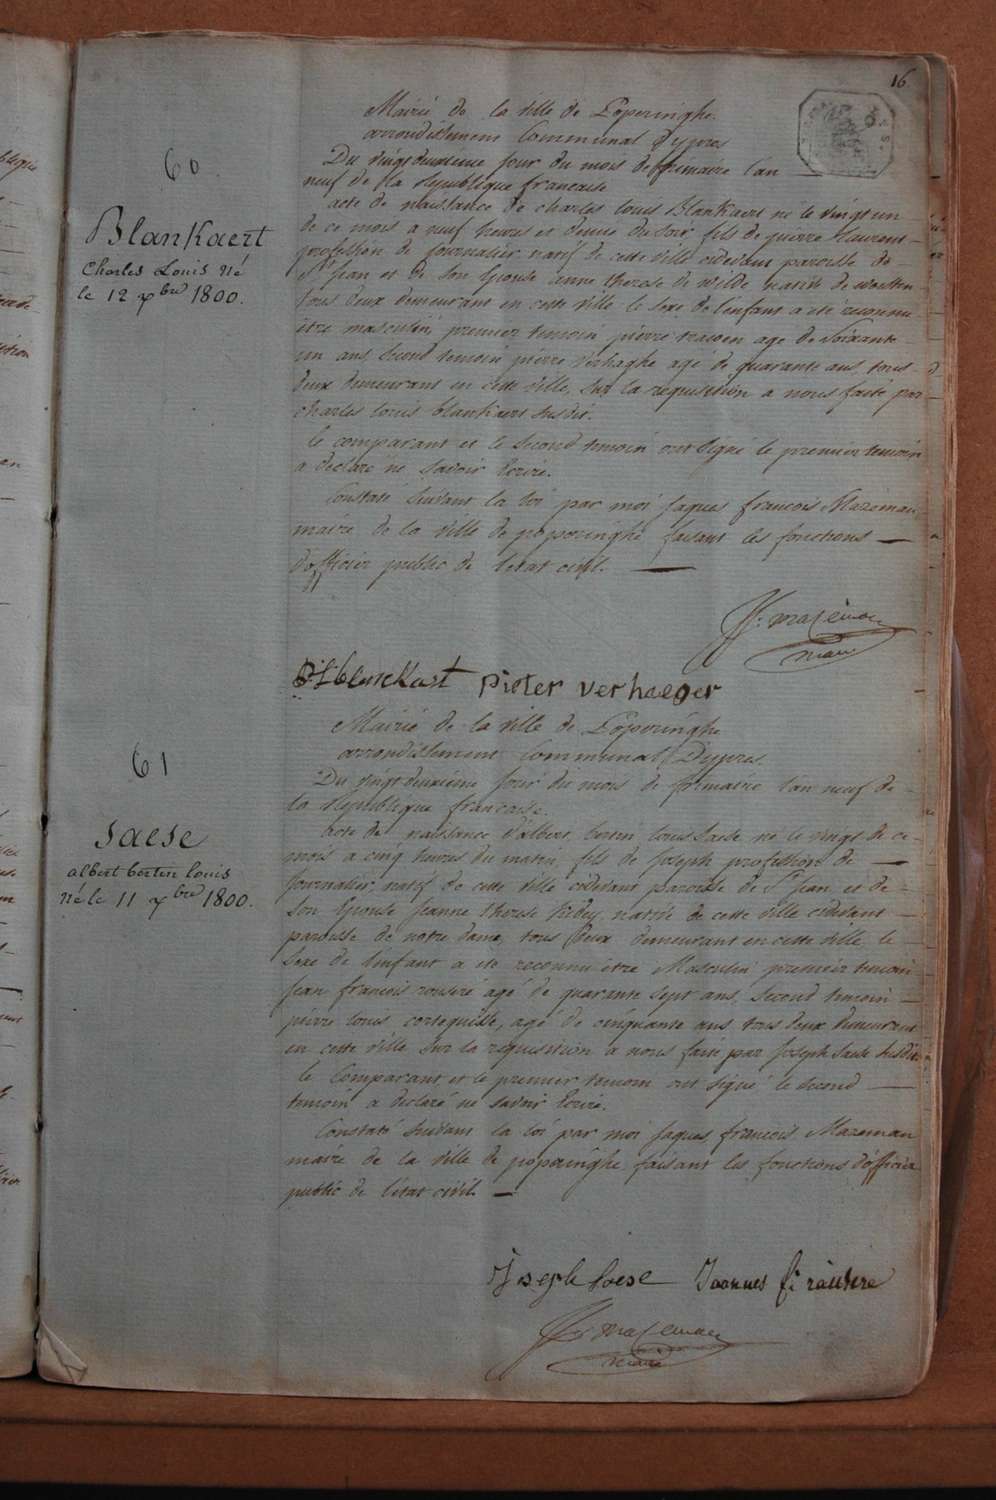 16
Mairie de la ville de Poperinghe
arrondissement Communal Dypres
60
Du vingt deuxieme jour du mois de frimaire l'an
neuf de la Republique francaise
acte de naissance de charles louis Blankaert né le vingt un
de ce mois a neuf heures et demie du soir fils de pierre laurent
profession de journalier natif de cette ville cidevant paroisse de
St jean et de son Epouse anne therese de wilde native de
tous deux demeurant en cette ville le sexe de l'enfant a été reconnu
être masculin, premier temoin pierre age de soixante
un ans, second temoin pierre verhaghe agé de quarante ans tous
deux demeurant en cette ville, sur la requisition a nous faite par
charles louis blankaert susdit.
le comparant et le second temoin ont signé le premier temoin
a declaré ne savoir Ecrire.
Constaté suivant la loi par moi jaques francois Mazeman
maire de la ville de poperinghe faisant les fonctions
dofficier public de l'etat civil.
Blankaert
Charles Louis Né
le 12 xbre 1800.
J: mazeman
maire
pieter verhaeger
Mairie de la ville de Poperinghe
arrondissement Communal Dypres.
61
Du vingt deuxieme jour du mois de frimaire l'an neuf de
la Republique francaise.
acte de naissance d'albert bertin louis Saese né le vingt de ce
mois a cinq heures du matin, fils de Joseph profession de
journalier, natif de cette ville cidevant paroisse de St Jean et de
son Epouse Jeanne therese native de cette ville cidevant
paroisse de notre dame, tous deux demeurant en cette ville, le
sexe de lenfant a eté reconnu être Masculin premier temoin
jean francois agé de quarante sept ans, second temoin
pierre louis agé de cinquante ans tous deux demeurant
en cette ville sur la requisition a nous faite par Joseph Saese susdit
le Comparant et le premier temoin ont signé le second
temoin a declaré ne savoir Ecrire.
Constaté suivant la loi par moi jaques francois Mazeman
maire de la ville de poperinghe faisant les fonctions d'officier
public de l'etat civil.
Saese
albert bertin louis
Né le 11 xbre 1800.
Joseph Saese Joannes
J: mazeman
maire